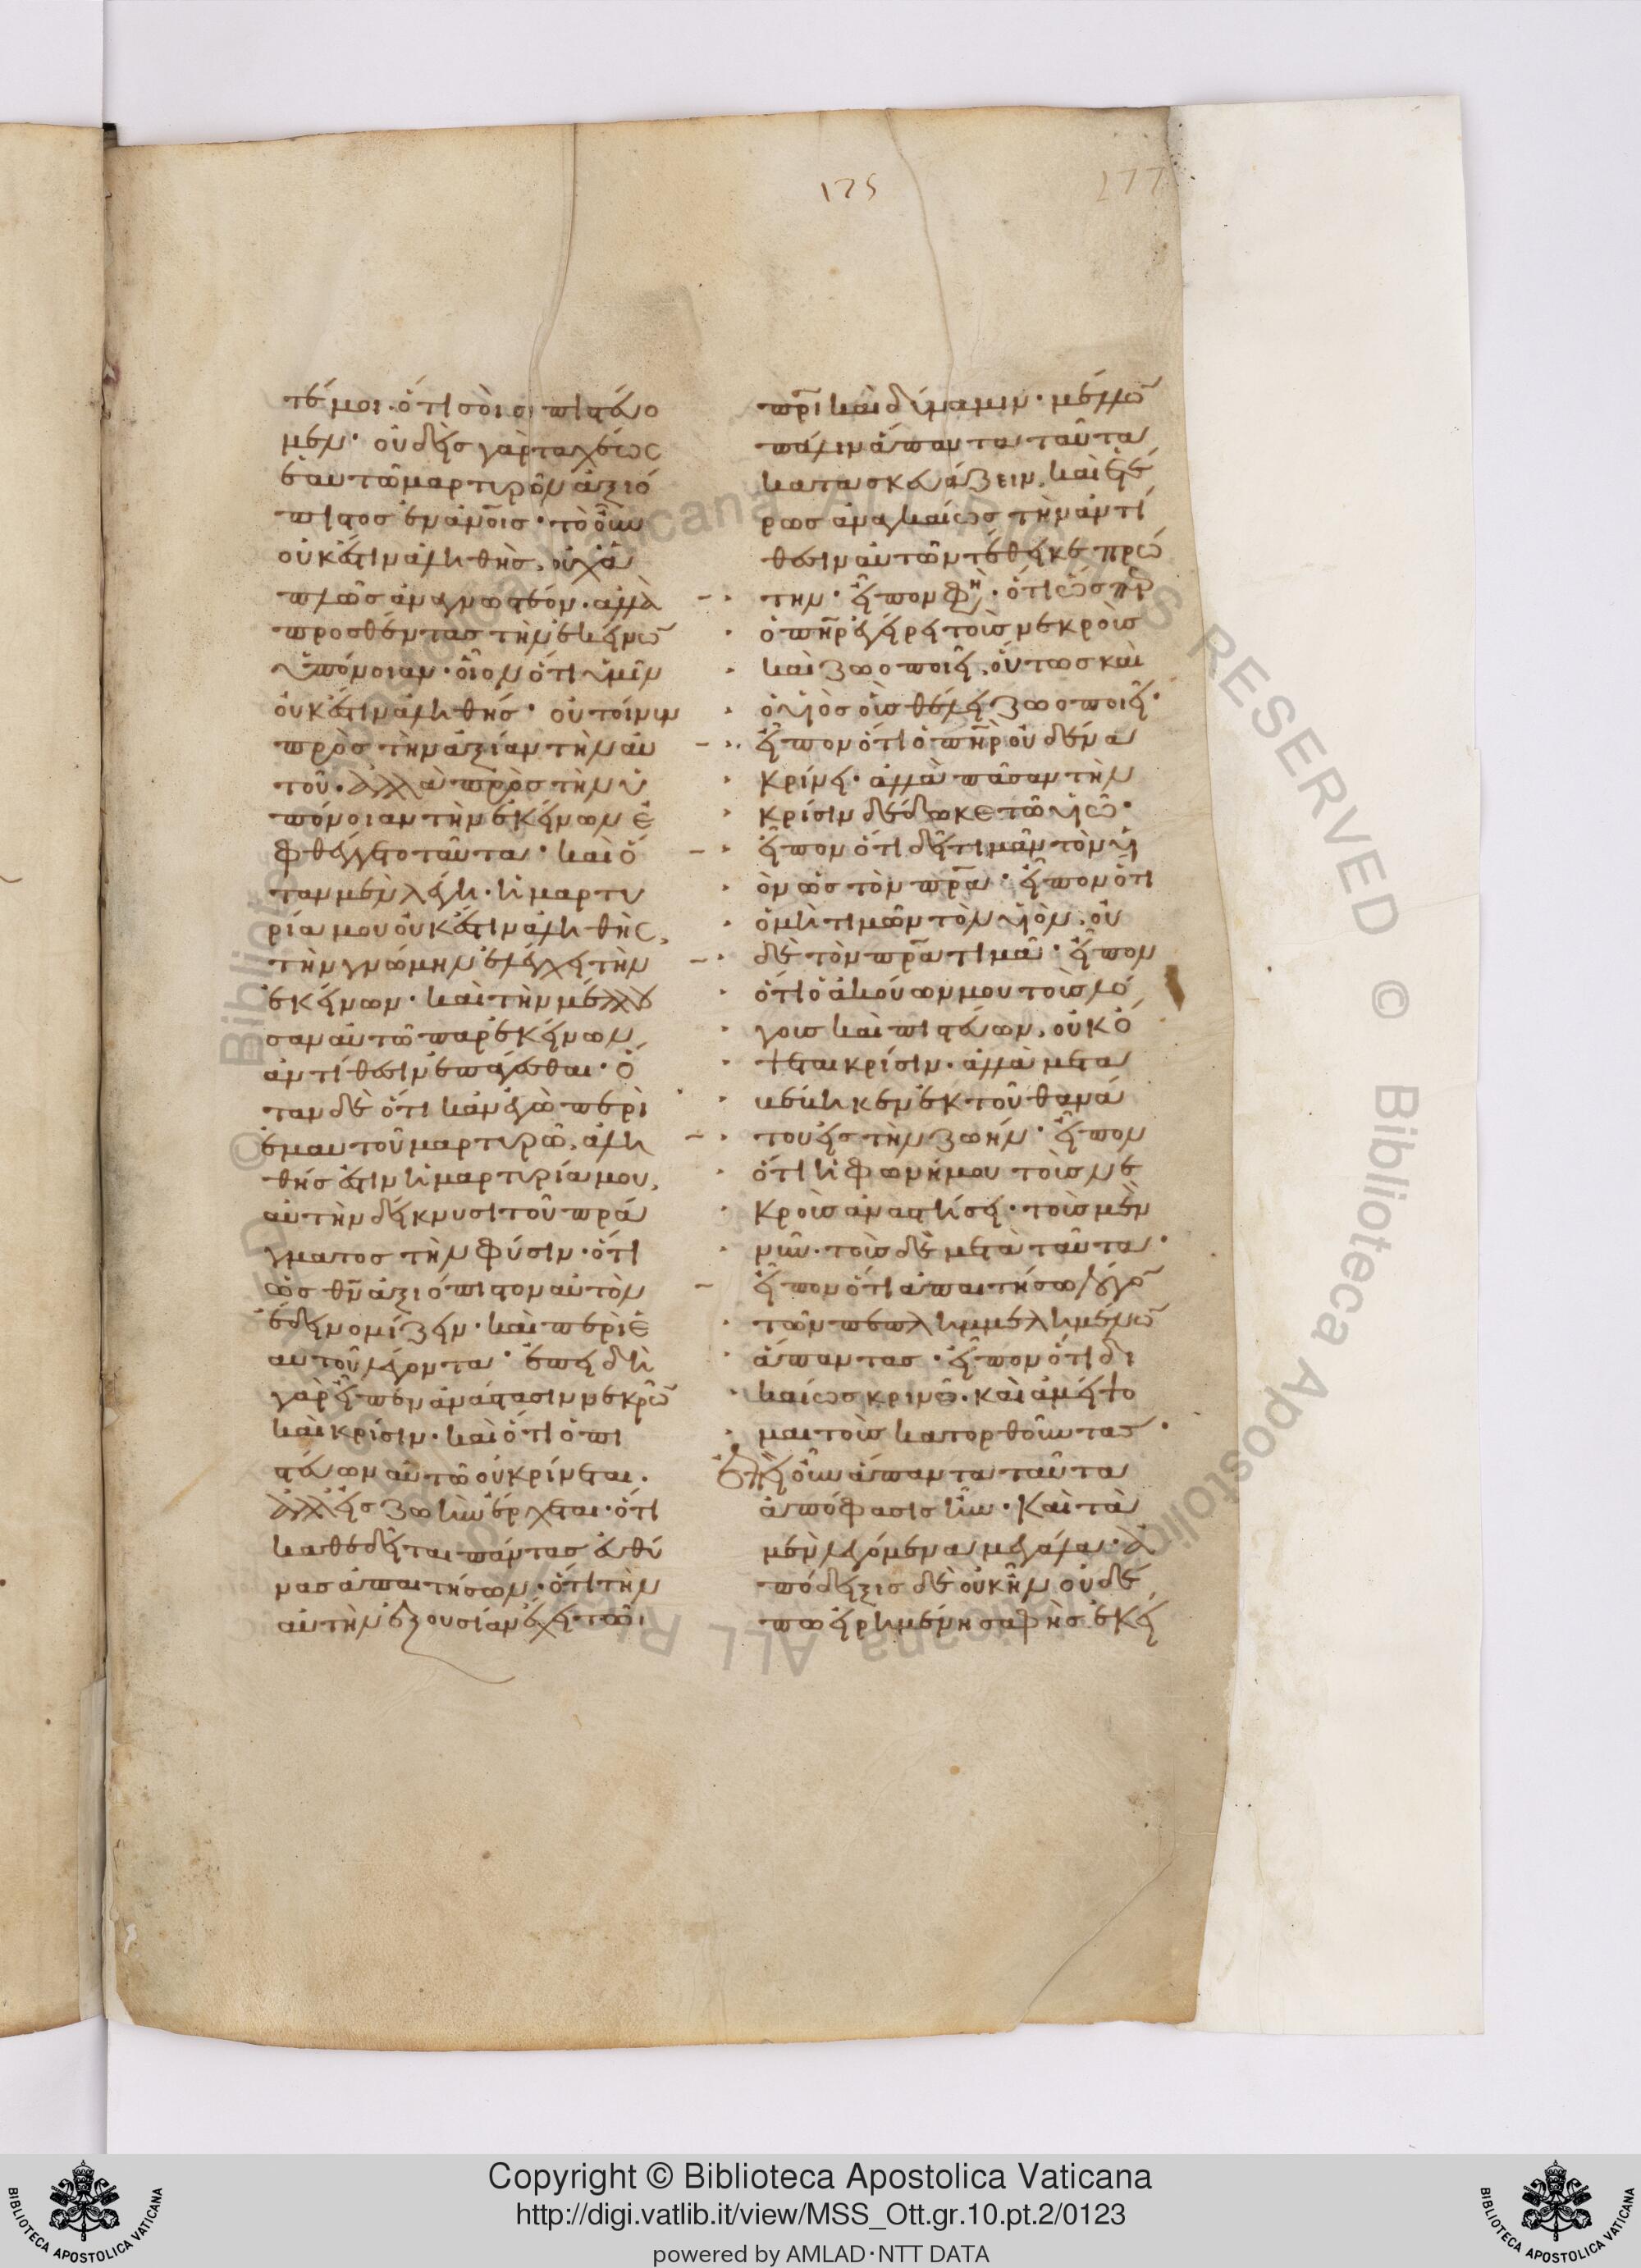 175
277
τέ μοι· ὅτι σοὶ οἱ πιστεύο
μεν· οὐδεὶς γὰρ ταχέως
ἑαυτῶ μαρτυρῶν ἀξιό
πιστος ἐν ἀνοῖς· τὸ οὖν
οὐκ ἔστιν ἀληθὴς, οὐχ ἁ
πλῶς ἀναγνωστέον· ἀλλὰ
προσθέντας τὴν ἐκείνω
ὑπόνοιαν· οἷον ὅτι ὑμῖν
οὐκ ἔστιν ἀληθής· οὐ τοίνυν
πρὸς τὴν ἀξίαν τὴν αὐ
τοῦ· ἀλλὰ πρὸς τὴν ὑ
πόνοιαν τὴν ἐκείνων ἐ
φθέγγετο ταῦτα· καὶ ὅ
ταν μὲν λέγη· ἡ μαρτυ
ρία μου οὐκ ἔστιν ἀληθὴς,
τὴν γνώμην ἐλέγχει τὴν
ἐκείνων· καὶ τὴν μέλλου
σαν αὐτῶ παρ' ἐκείνων
ἀντίθεσιν ἐπάγεσθαι· ὅ
ταν δὲ ὅτι κἀν ἐγὼ περὶ
ἐμαυτοῦ μαρτυρῶ, ἀλη
θής ἐστιν ἡ μαρτυρία μου,
αὐτὴν δείκνυσι τοῦ πρά
γματος τὴν φύσιν· ὅτι
ὡς θν ἀξιόπιστον αὐτὸν
ἔδει νομίζειν· καὶ περὶ ἑ
αυτοῦ λέγοντα· ἐπειδὴ
γὰρ εἶπεν ἀνάστασιν νεκρῶ
καὶ κρίσιν· καὶ ὅτι ὁ πι
στεύων αὐτῶ οὐ κρίνεται·
ἀλλ' εἰς ζωὴν ἔρχεται· ὅτι
καθεδεῖται πάντας εὐθύ
νας ἀπαιτήσων· ὅτι τὴν
αὐτὴν ἐξουσίαν ἔχει τῶι
πρι καὶ δύναμιν· μέλλω
πάλιν ἅπαντα ταῦτα
κατασκευάζειν, καὶ ἑτέ
ρως ἀναγκαίως τὴν ἀντί
θεσιν αὐτῶν τέθηκε πρώ
την· εἶπον φη· ὅτι ὥσπερ
ὁ πηρ ἐγείρει τοὺς νεκροὺς
καὶ ζωοποιεῖ, οὕτως καὶ
ὁ υἱὸς οὓς θέλει ζωοποιεῖ·
εἶπον ὅτι ὁ πηρ οὐδένα
κρίνει· ἀλλὰ πᾶσαν τὴν
κρίσιν δέδωκε τῶ υἱῶ·
εἶπον ὅτι δεῖ τιμᾶν τὸν υἱ
ὸν ὡς τὸν πρα· εἶπον ὅτι
ὁ μὴ τιμῶν τὸν υἱὸν, οὐ
δὲ τὸν πρα τιμᾶ· εἶπον
ὅτι ὁ ἀκούων μου τοὺς λό
γους καὶ πιστεύων, οὐκ ὄ
ψεται κρίσιν· ἀλλὰ μετα
βέβηκεν ἐκ τοῦ θανά
του εἰς τὴν ζωήν· εἶπον
ὅτι ἡ φωνή μου τοὺς νε
κροὺς ἀναστήσει· τοὺς μὲν
νῦν· τοὺς δὲ μετὰ ταῦτα·
εἶπον ὅτι ἀπαιτήσω λόγο
τῶν πεπλημμελημένω
ἅπαντας· εἶπον ὅτι δι
καίως κρινῶ· καὶ ἀμείψο
μαι τοὺς κατορθοῦντας·
ἐπεὶ οὖν ἅπαντα ταῦτα
ἀπόφασις ἦν· καὶ τὰ
μὲν λεγόμενα μεγάλα· ἀ
πόδειξις δὲ οὐκ ἦν οὐδέ
πω εἰρημένη σαφὴς ἐκεί
© Biblioteca Apostolica Vaticana ALL RIGHTS RESERVED
Copyright © Biblioteca Apostolica Vaticana
http://digi.vatlib.it/view/MSS_Ott.gr.10.pt.2/0123
powered by AMLAD·NTT DATA
BIBLIOTECA APOSTOLICA VATICANA
BIBLIOTECA APOSTOLICA VATICANA